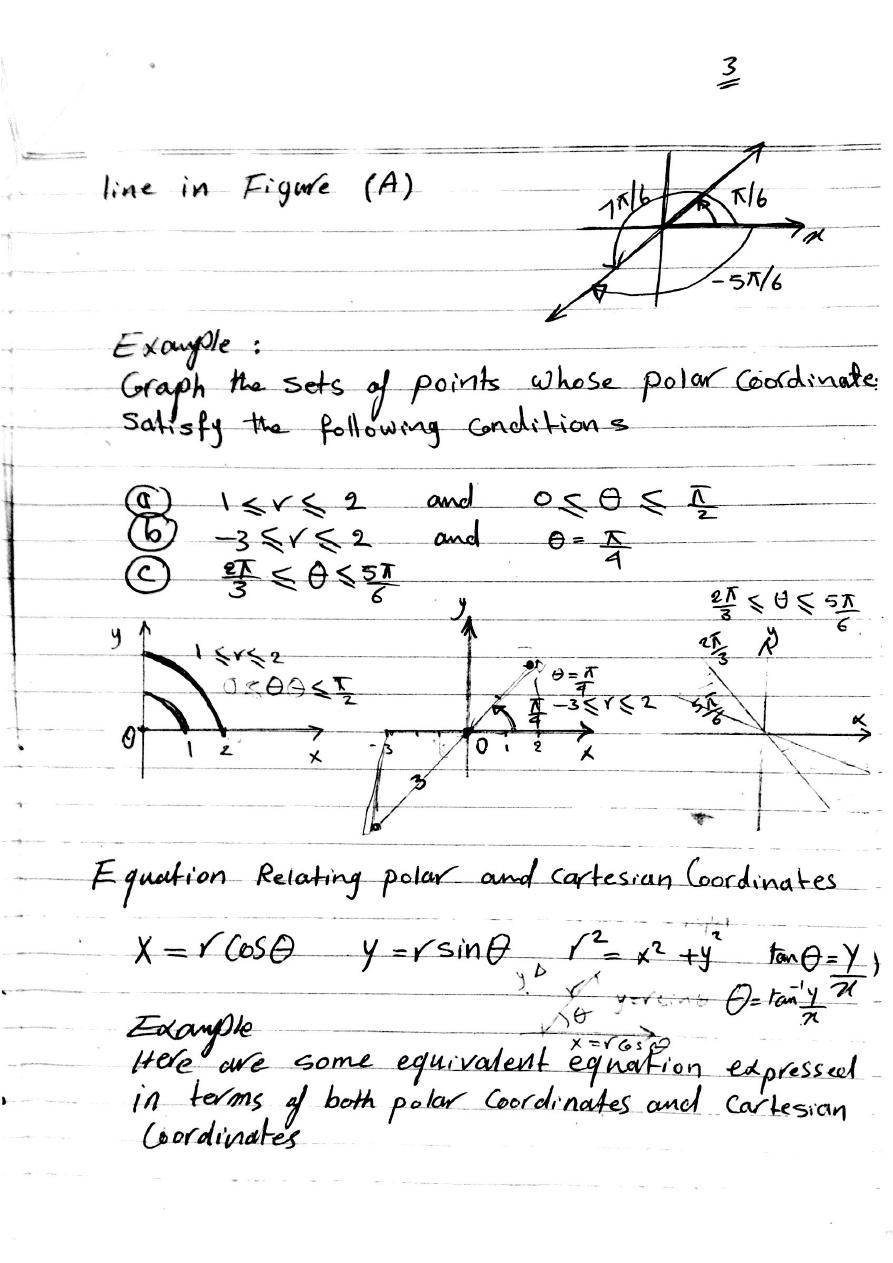 3
line in Figure (A)
7π/6
π/6
x
-5π/6
Example :
Graph the sets of points whose polar Coordinate
Satisfy the following Conditions
(a) 1 ≤ r ≤ 2 and 0 ≤ θ ≤ π/2
(b) -3 ≤ r ≤ 2 and θ = π/4
(c) 2π/3 ≤ θ ≤ 5π/6
y
1 ≤ r ≤ 2
0 ≤ θ ≤ π/2
0 1 2 x
y
θ = π/4
π/4 -3 ≤ r ≤ 2
-3 0 1 2 x
3
2π/3 ≤ θ ≤ 5π/6
2π/3 y
5π/6
x
Equation Relating polar and Cartesian Coordinates
X = r Cosθ y = r sinθ r² = x² + y² tanθ = y/x ,
θ = tan⁻¹ y/x
y r θ y = r sinθ
x = r cosθ
Example
Here are some equivalent equation expressed
in terms of both polar Coordinates and Cartesian
Coordinates